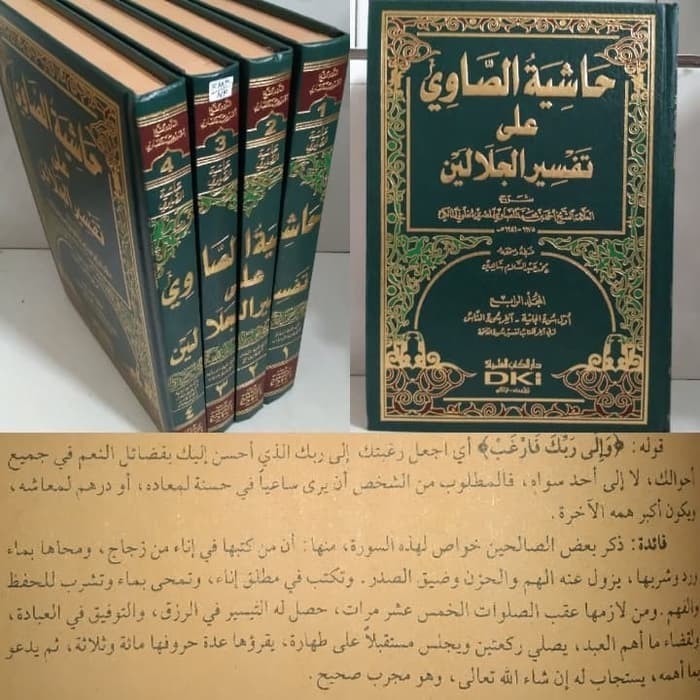 حاشية الصاوي
على
تفسير الجلالين
4
3
2
1
حاشية الصاوي
على
تفسير الجلالين
٤
٣
٢
١
حاشية الصاوي
على
تفسير الجلالين
شرح
المجلد الرابع
أول سورة الجاثية - آخر سورة الناس
دار الكتب العلمية
DKi
قوله: ﴿وَإِلَى رَبِّكَ فَارْغَبْ﴾ أي اجعل رغبتك إلى ربك الذي أحسن إليك بفضائل النعم في جميع
احوالك، لا إلى أحد سواه، فالمطلوب من الشخص أن يرى ساعياً في حسنة لمعاده، أو درهم لمعاشه،
ويكون أكبر همه الآخرة.
فائدة: ذكر بعض الصالحين خواص لهذه السورة، منها: أن من كتبها في إناء من زجاج، ومحاها بماء
ورد وشربها، يزول عنه الهم والحزن وضيق الصدر. وتكتب في مطلق إناء، وتمحى بماء وتشرب للحفظ
والفهم. ومن لازمها عقب الصلوات الخمس عشر مرات، حصل له التيسير في الرزق، والتوفيق في العبادة،
ولقضاء ما أهم العبد، يصلي ركعتين ويجلس مستقبلاً على طهارة، يقرؤها عدة حروفها مائة وثلاثة، ثم يدعو
بما أهمه، يستجاب له إن شاء الله تعالى، وهو مجرب صحيح.